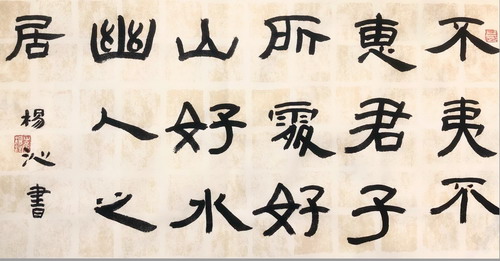 不夷不
惠君子
所處好
山好水
幽人之
居
楊沁書